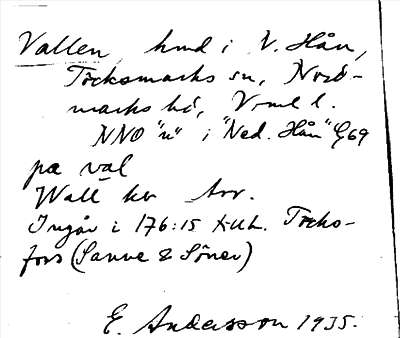 Vallen, hmd i V. Hån,
Töcksmarks sn, Nord-
marks hd, Vrml l.
NNO "n" i "Ned. Hån" G69
pa val
Wall kv Arr.
Ingår i 176:15 Töcks-
fors (Sanne & Söner)
E. Andersson 1935.